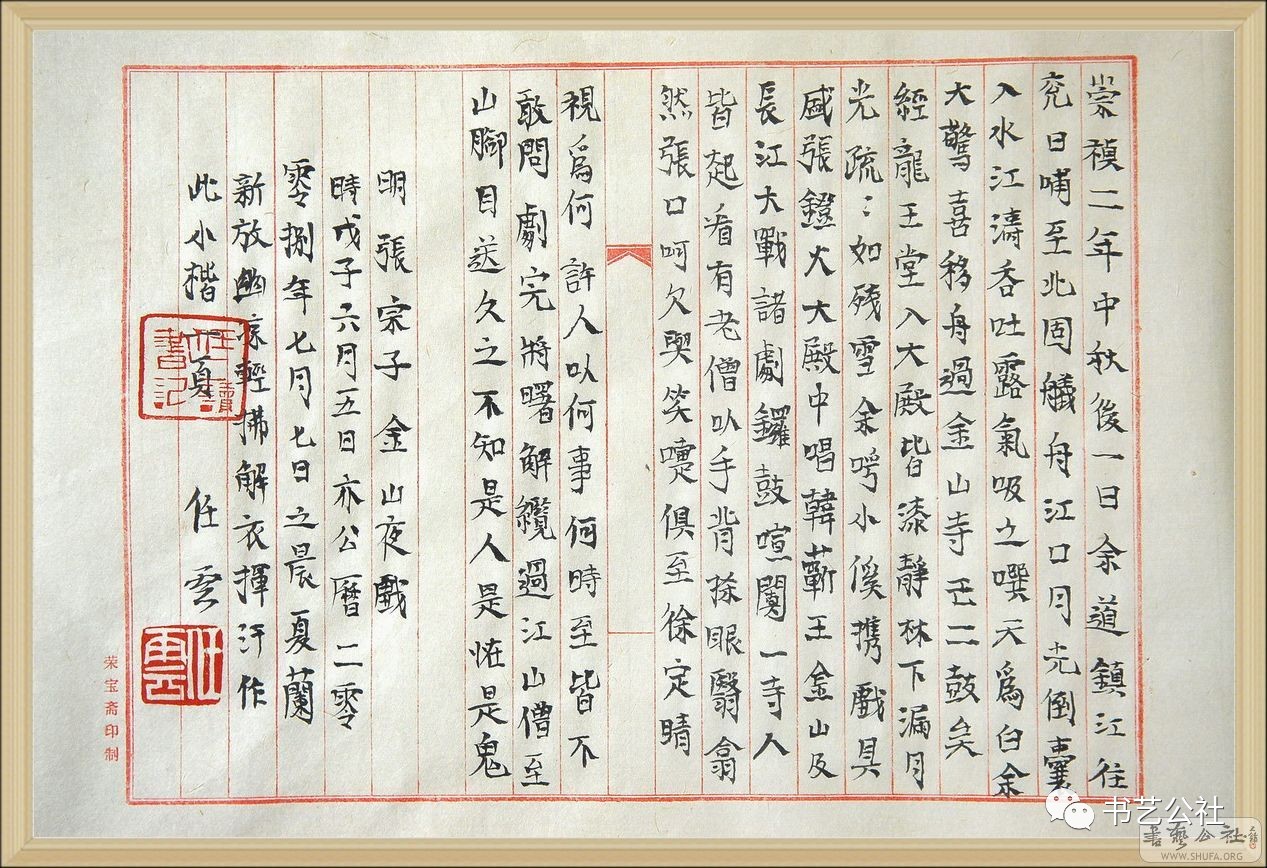 崇禎二年中秋後一日余道鎮江往
兖日晡至北固艤舟江口月光倒囊
入水江濤吞吐露氣吸之噀天爲白余
大驚喜移舟過金山寺已二鼓矣
經龍王堂入大殿皆漆靜林下漏月
光疏〻如殘雪余呼小傒携戲具
盛張鐙火大殿中唱韓蘄王金山及
長江大戰諸劇鑼鼓喧闐一寺人
皆起看有老僧以手背摋眼翳翕
然張口呵欠與笑嚏俱至徐定睛
視爲何許人以何事何時至皆不
敢問劇完將曙解纜過江山僧至
山腳目送久之不知是人是恠是鬼
明張宗子金山夜戲
時戊子六月五日亦公曆二零
零捌年七月七日之晨夏蘭
新放幽涼輕拂解衣揮汗作
此小楷一頁 任雲
荣宝斋印制
书艺公社
書藝公社
WWW.SHUFA.ORG